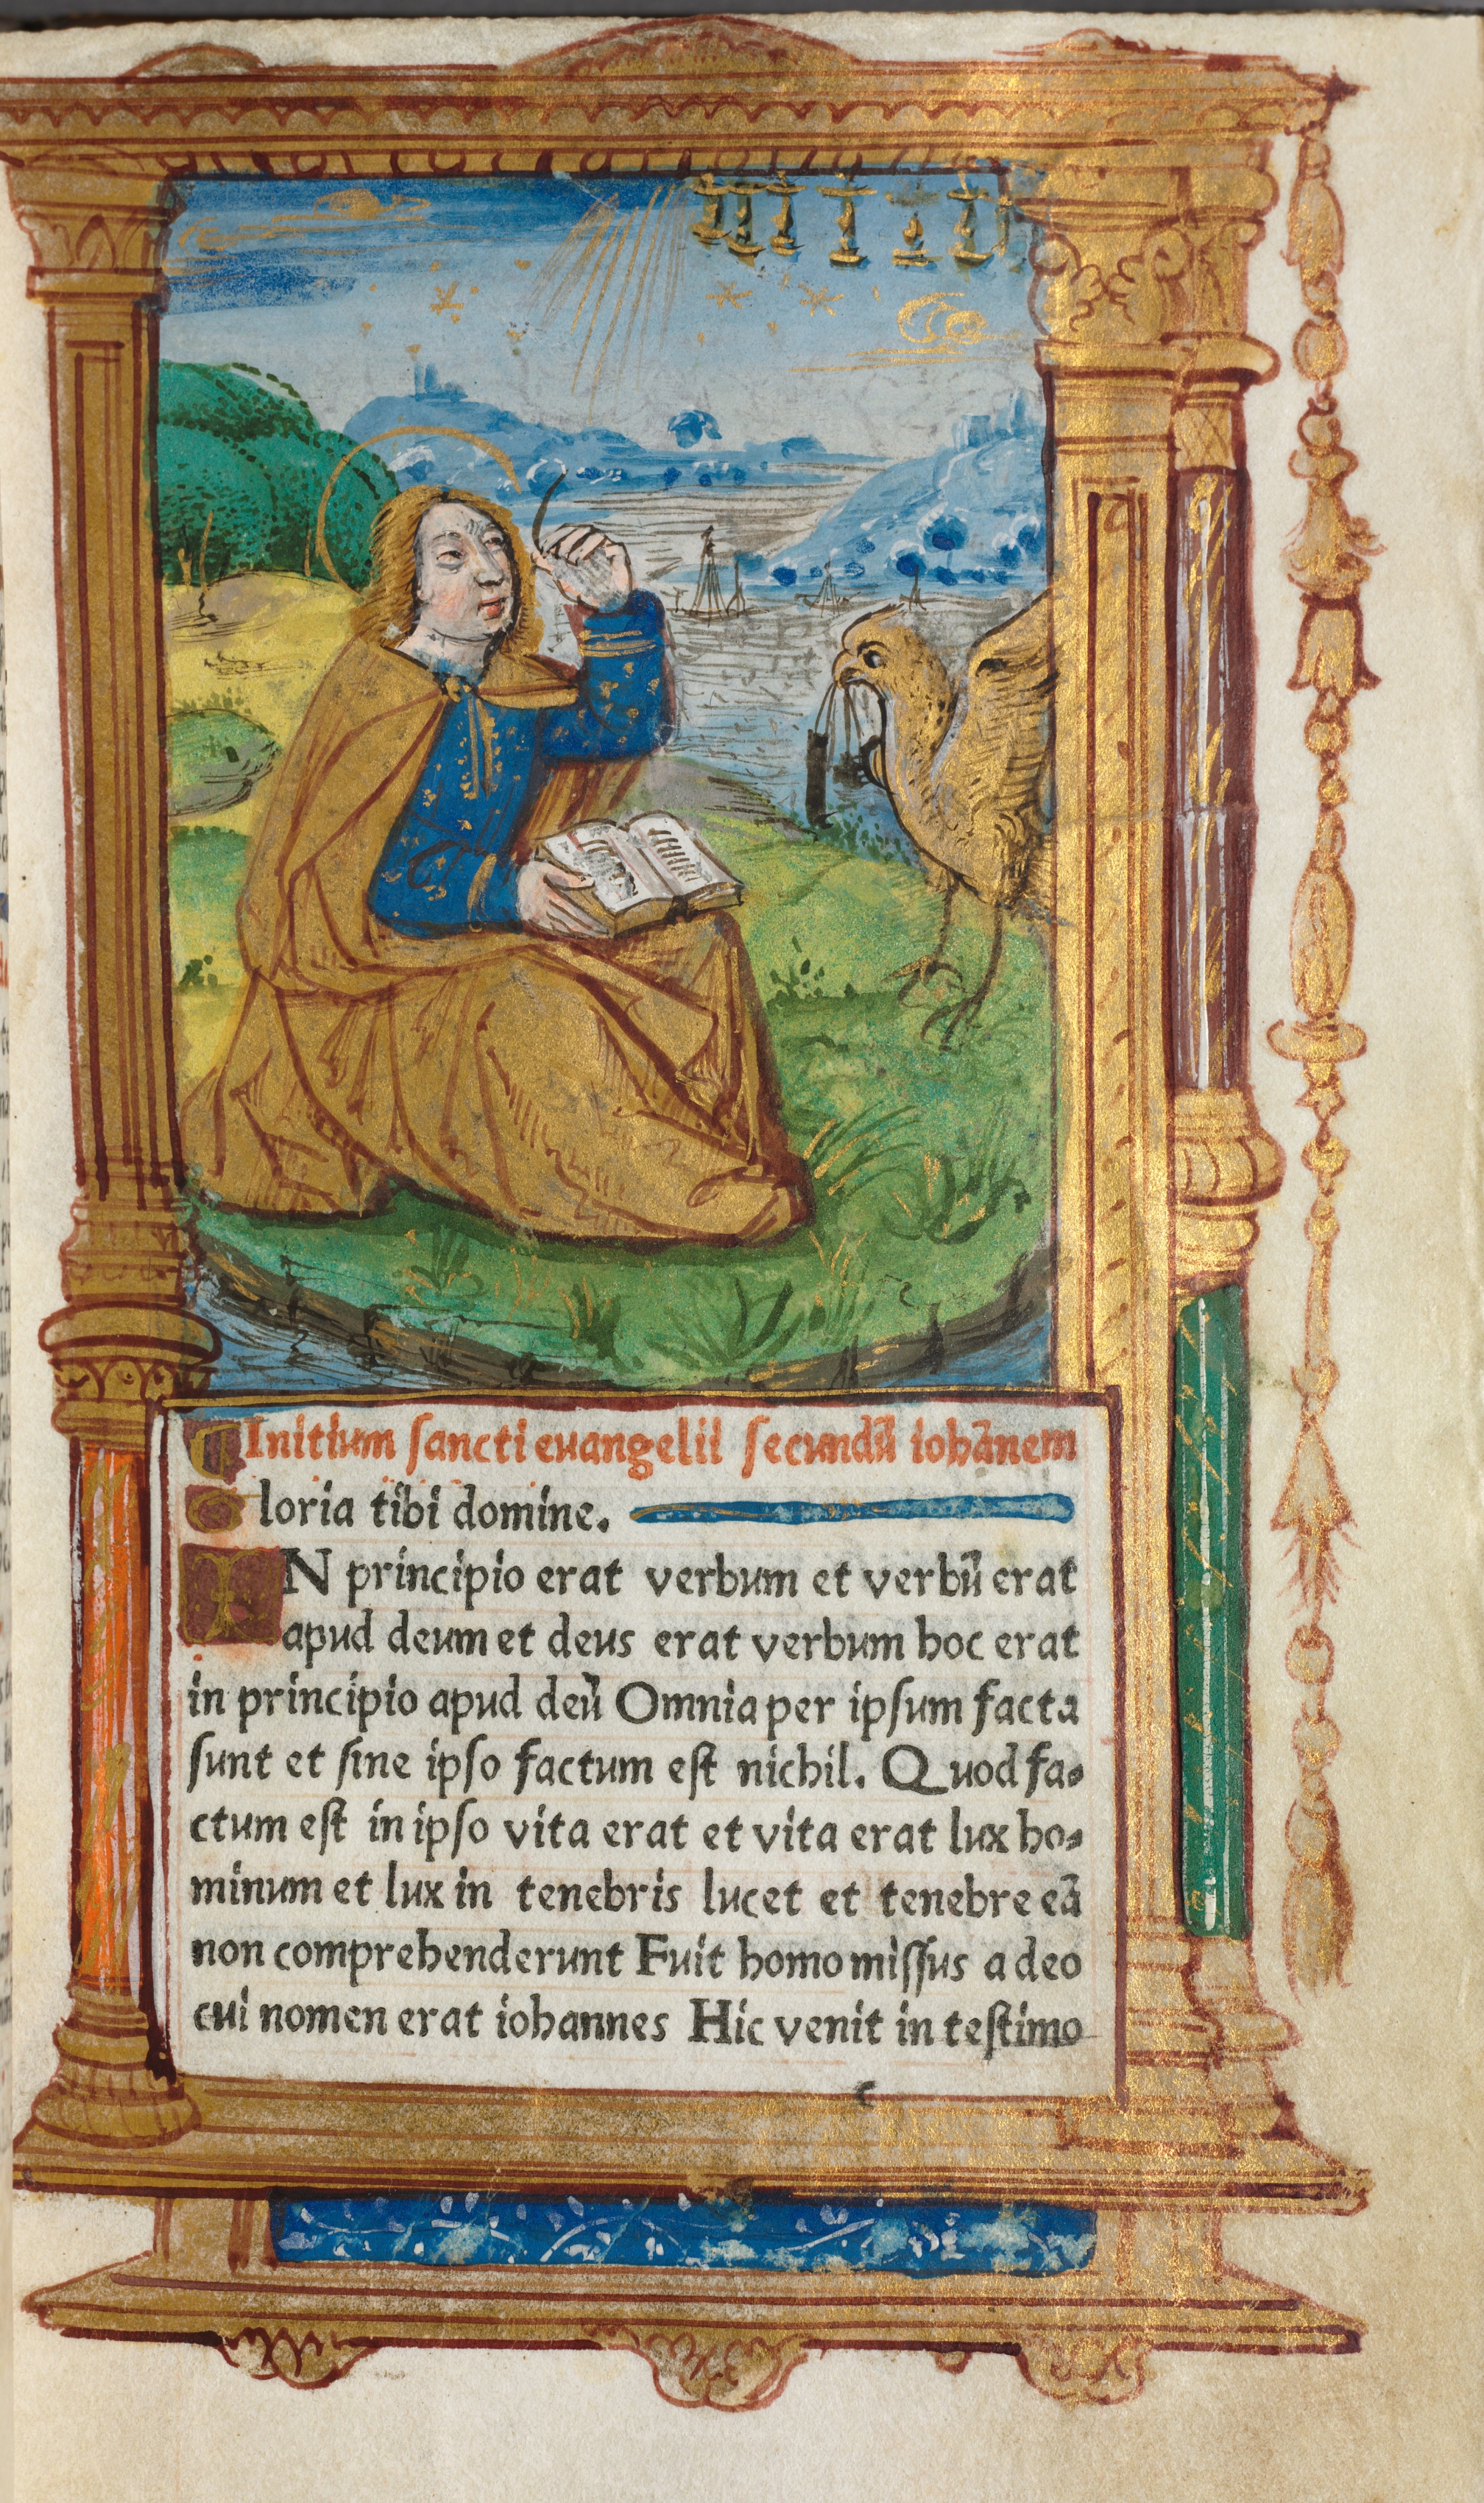 ¶Initium ſancti euangelii ſecundū iohānem
Gloria tibi domine.
IN principio erat verbum et verbū erat
apud deum et deus erat verbum hoc erat
in principio apud deū Omnia per ipſum facta
ſunt et ſine ipſo factum eſt nichil. Quod fa⸗
ctum eſt in ipſo vita erat et vita erat lux ho⸗
minum et lux in tenebris lucet et tenebre eā
non comprehenderunt Fuit homo miſſus a deo
cui nomen erat iohannes Hic venit in teſtimo